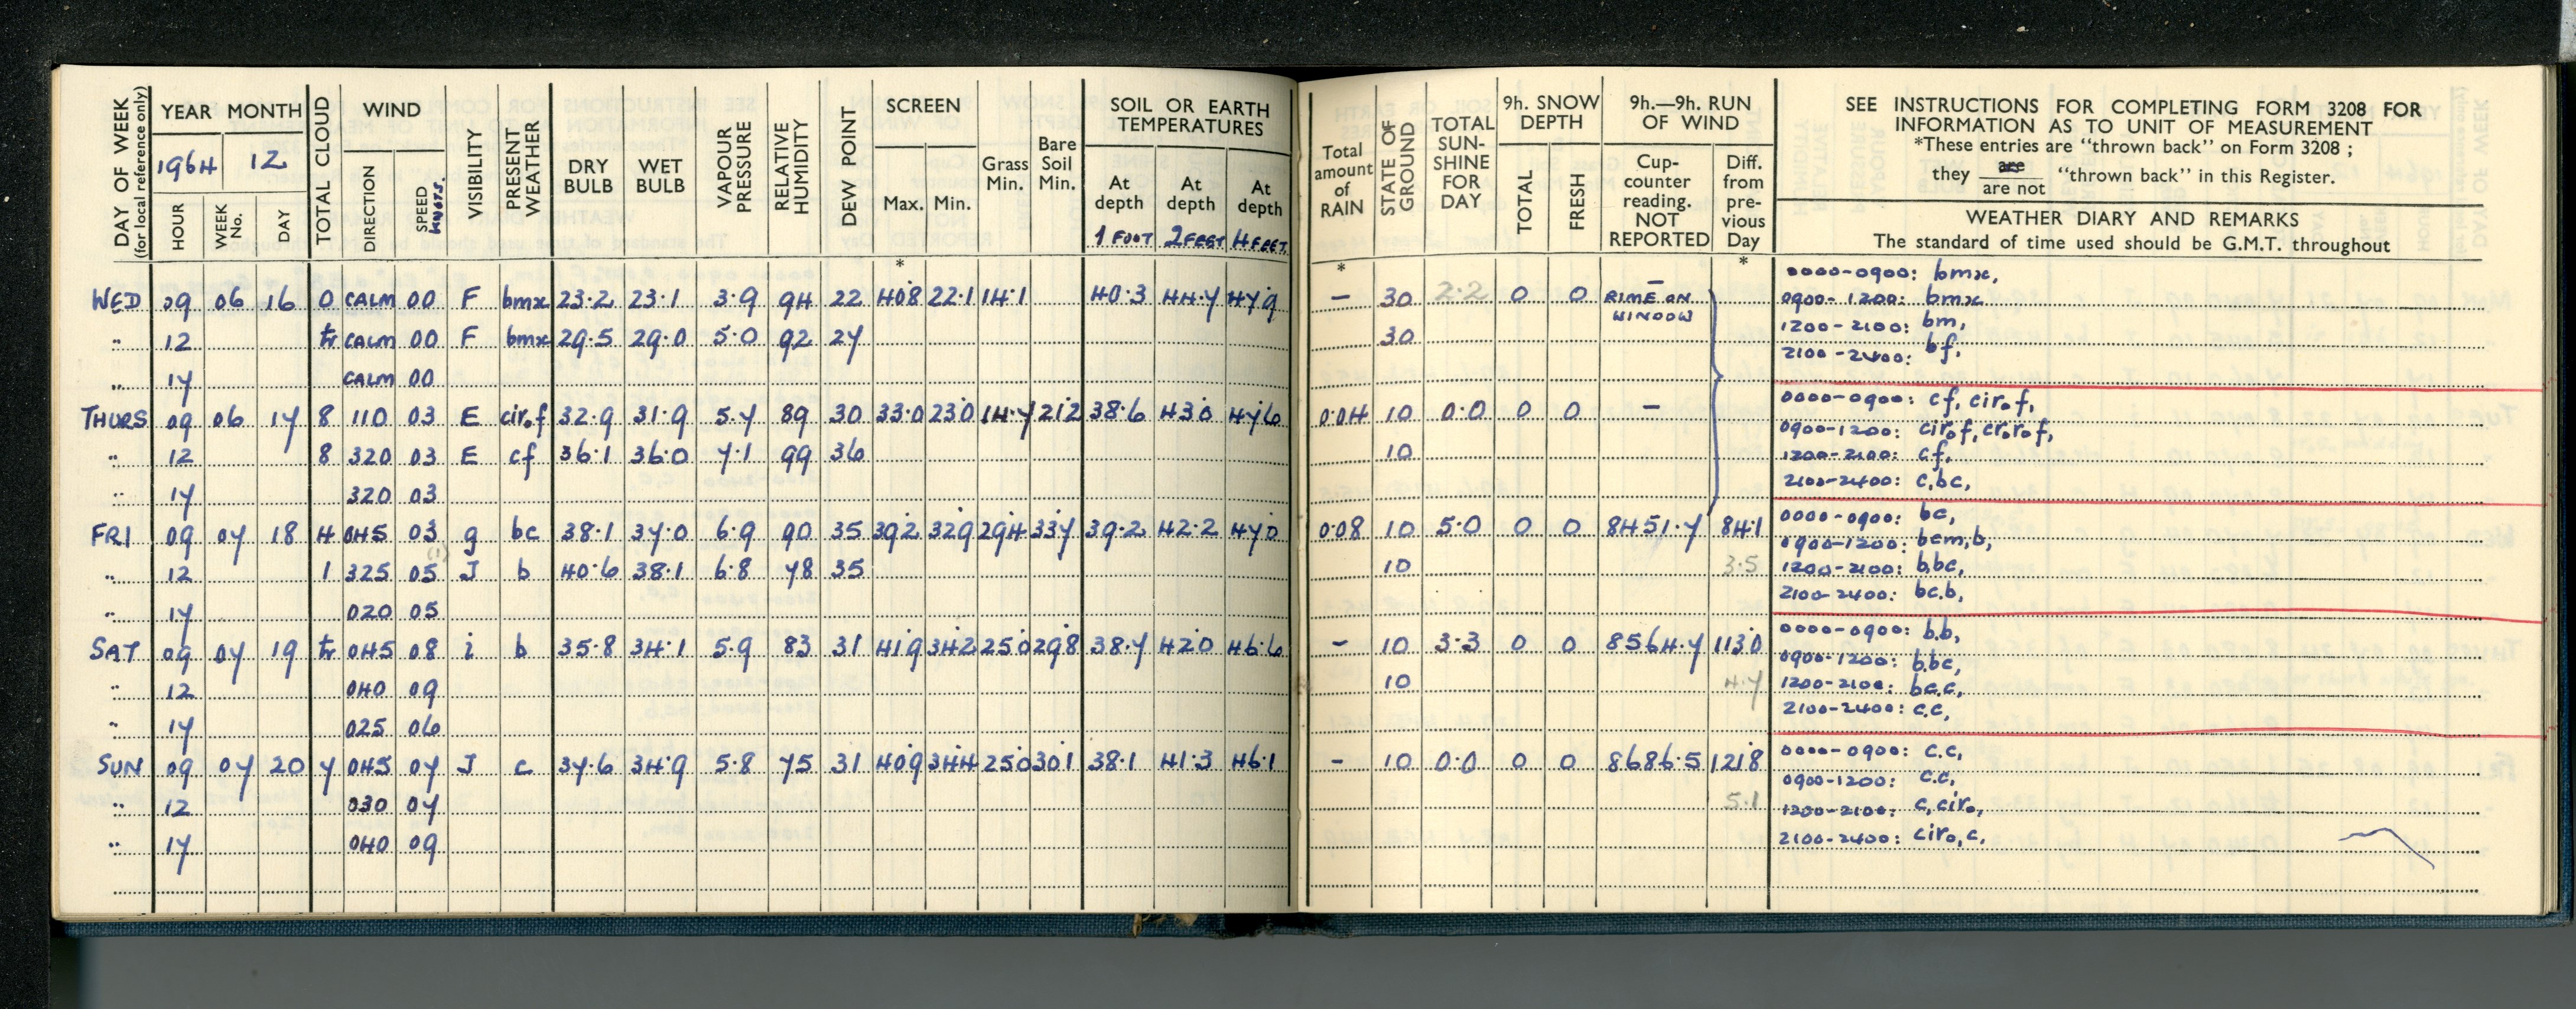 DAY OF WEEK (for local reference only) YEAR MONTH TOTAL CLOUD WIND VISIBILITY PRESENT WEATHER DRY BULB WET BULB VAPOUR PRESSURE RELATIVE HUMIDITY DEW POINT SCREEN Grass Min. Bare Soil Min. SOIL OR EARTH TEMPERATURES
1964 12
HOUR WEEK No. DAY DIRECTION SPEED knots. Max. Min. At depth At depth At depth
1 FOOT 2 FEET 4 FEET
*
WED 09 06 16 0 CALM 00 F bmx 23.2 23.1 3.9 94 22 40.8 22.1 14.1 40.3 44.7 47.9
" 12 tr CALM 00 F bmx 29.5 29.0 5.0 92 27
" 17 CALM 00
THURS 09 06 17 8 110 03 E cir₀f 32.9 31.9 5.7 89 30 33.0 23.0 14.7 21.2 38.6 43.0 47.6
" 12 8 320 03 E cf 36.1 36.0 7.1 99 36
" 17 320 03
FRI 09 07 18 4 045 03 g bc 38.1 37.0 6.9 90 35 39.2 32.9 29.4 33.7 39.2 42.2 47.0
" 12 1 325 05 J b 40.6 38.1 6.8 78 35
" 17 020 05
SAT 09 07 19 tr 045 08 i b 35.8 34.1 5.9 83 31 41.9 34.2 25.0 29.8 38.7 42.0 46.6
" 12 040 09
" 17 025 06
SUN 09 07 20 7 045 07 J c 37.6 34.9 5.8 75 31 40.9 34.4 25.0 30.1 38.1 41.3 46.1
" 12 030 07
" 17 040 09
Total amount of RAIN STATE OF GROUND TOTAL SUN-SHINE FOR DAY 9h. SNOW DEPTH 9h.—9h. RUN OF WIND
TOTAL FRESH Cup-counter reading. NOT REPORTED Diff. from pre-vious Day
* *
– 30 2.2 0 0 –
RIME ON WINDOW
30
0.04 10 0.0 0 0 –
10
0.08 10 5.0 0 0 8451.7 84.1
10 3.5
– 10 3.3 0 0 8564.7 113.0
10 4.7
– 10 0.0 0 0 8686.5 121.8
5.1
SEE INSTRUCTIONS FOR COMPLETING FORM 3208 FOR
INFORMATION AS TO UNIT OF MEASUREMENT
*These entries are "thrown back" on Form 3208 ;
they are / are not "thrown back" in this Register.
WEATHER DIARY AND REMARKS
The standard of time used should be G.M.T. throughout
0000-0900: bmx,
0900-1200: bmx
1200-2100: bm,
2100-2400: bf,
0000-0900: cf, cir₀f,
0900-1200: cir₀f, cr₀r₀f,
1200-2100: cf,
2100-2400: c,bc,
0000-0900: bc,
0900-1200: bcm,b,
1200-2100: b,bc,
2100-2400: bc,b,
0000-0900: b,b,
0900-1200: b,bc,
1200-2100: bc,c,
2100-2400: c,c,
0000-0900: c,c,
0900-1200: c,c,
1200-2100: c,cir₀,
2100-2400: cir₀,c,